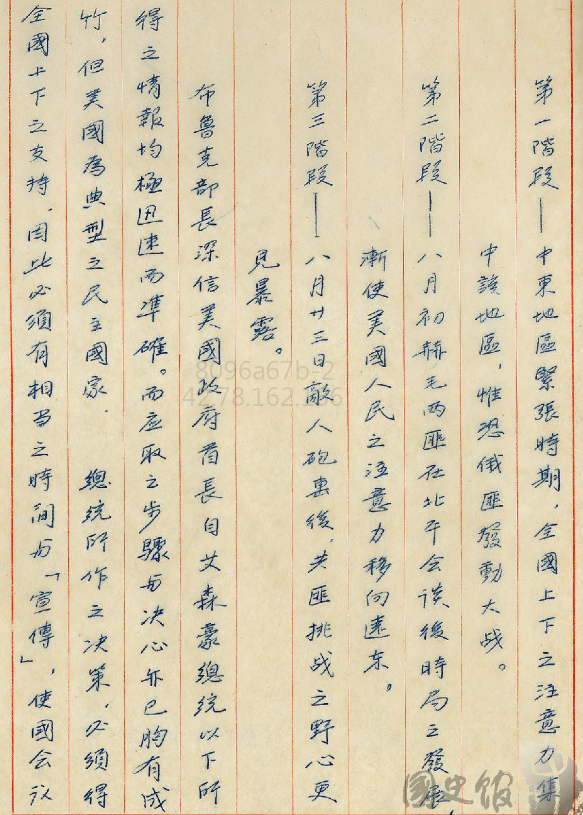 第一階段——中東地區緊張時期，全國上下之注意力集
中該地區，惟恐俄匪發動大战。
第二階段——八月初赫毛两匪在北平会談後時局之發展，
漸使美國人民之注意力移向遠东。
第三階段——八月廿三日敵人砲击後，共匪挑战之野心更
見暴露。
布魯克部長深信美國政府首長自艾森豪總統以下所
得之情報均極迅速而準確。而应取之步驟与决心亦已胸有成
竹，但美國為典型之民主國家．　總統所作之决策，必須得
全國上下之支持，因此必須有相当之時間与「宣傳」，使國会议
8096a67b-2
42.78.162.186
國史館